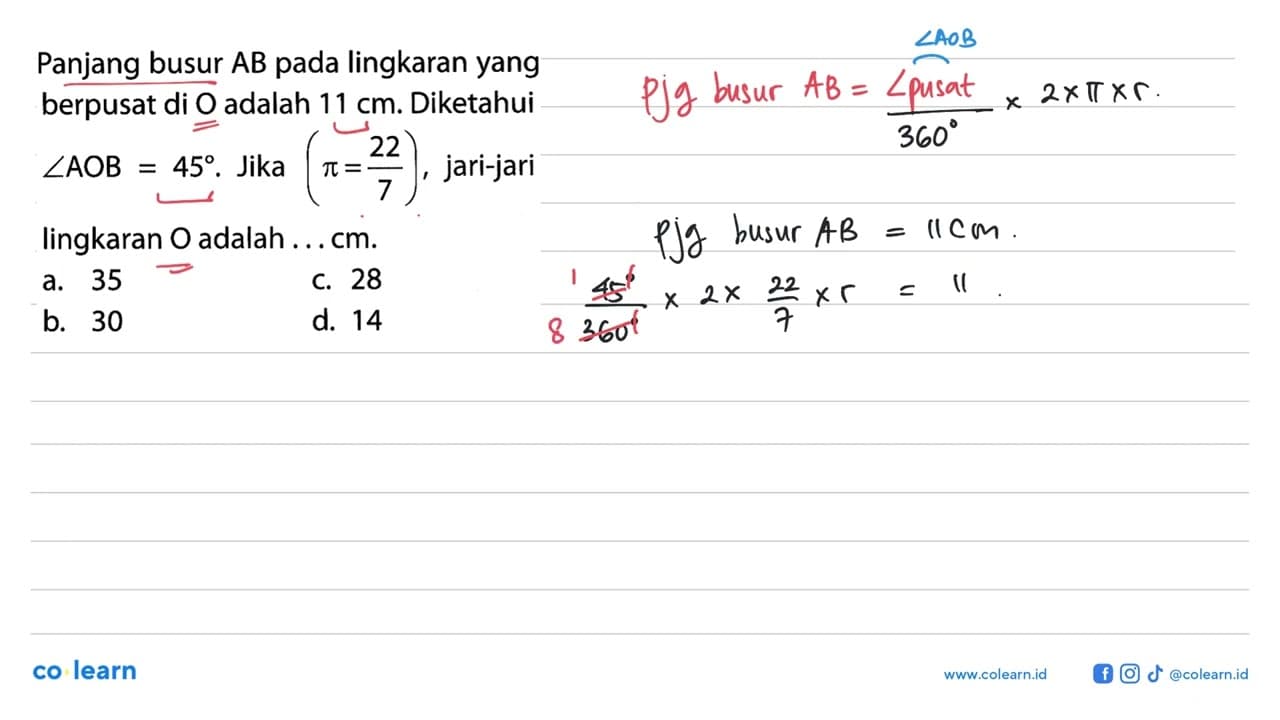 Panjang busur AB pada lingkaran yang
berpusat di O adalah 11 cm. Diketahui
∠AOB = 45°. Jika (π = 22/7), jari-jari
lingkaran O adalah ... cm.
a. 35 c. 28
b. 30 d. 14
∠AOB
Pjg busur AB = ∠pusat/360° × 2 × π × r.
Pjg busur AB = 11 cm.
1 45°/8 360° × 2 × 22/7 × r = 11.
co learn
www.colearn.id @colearn.id